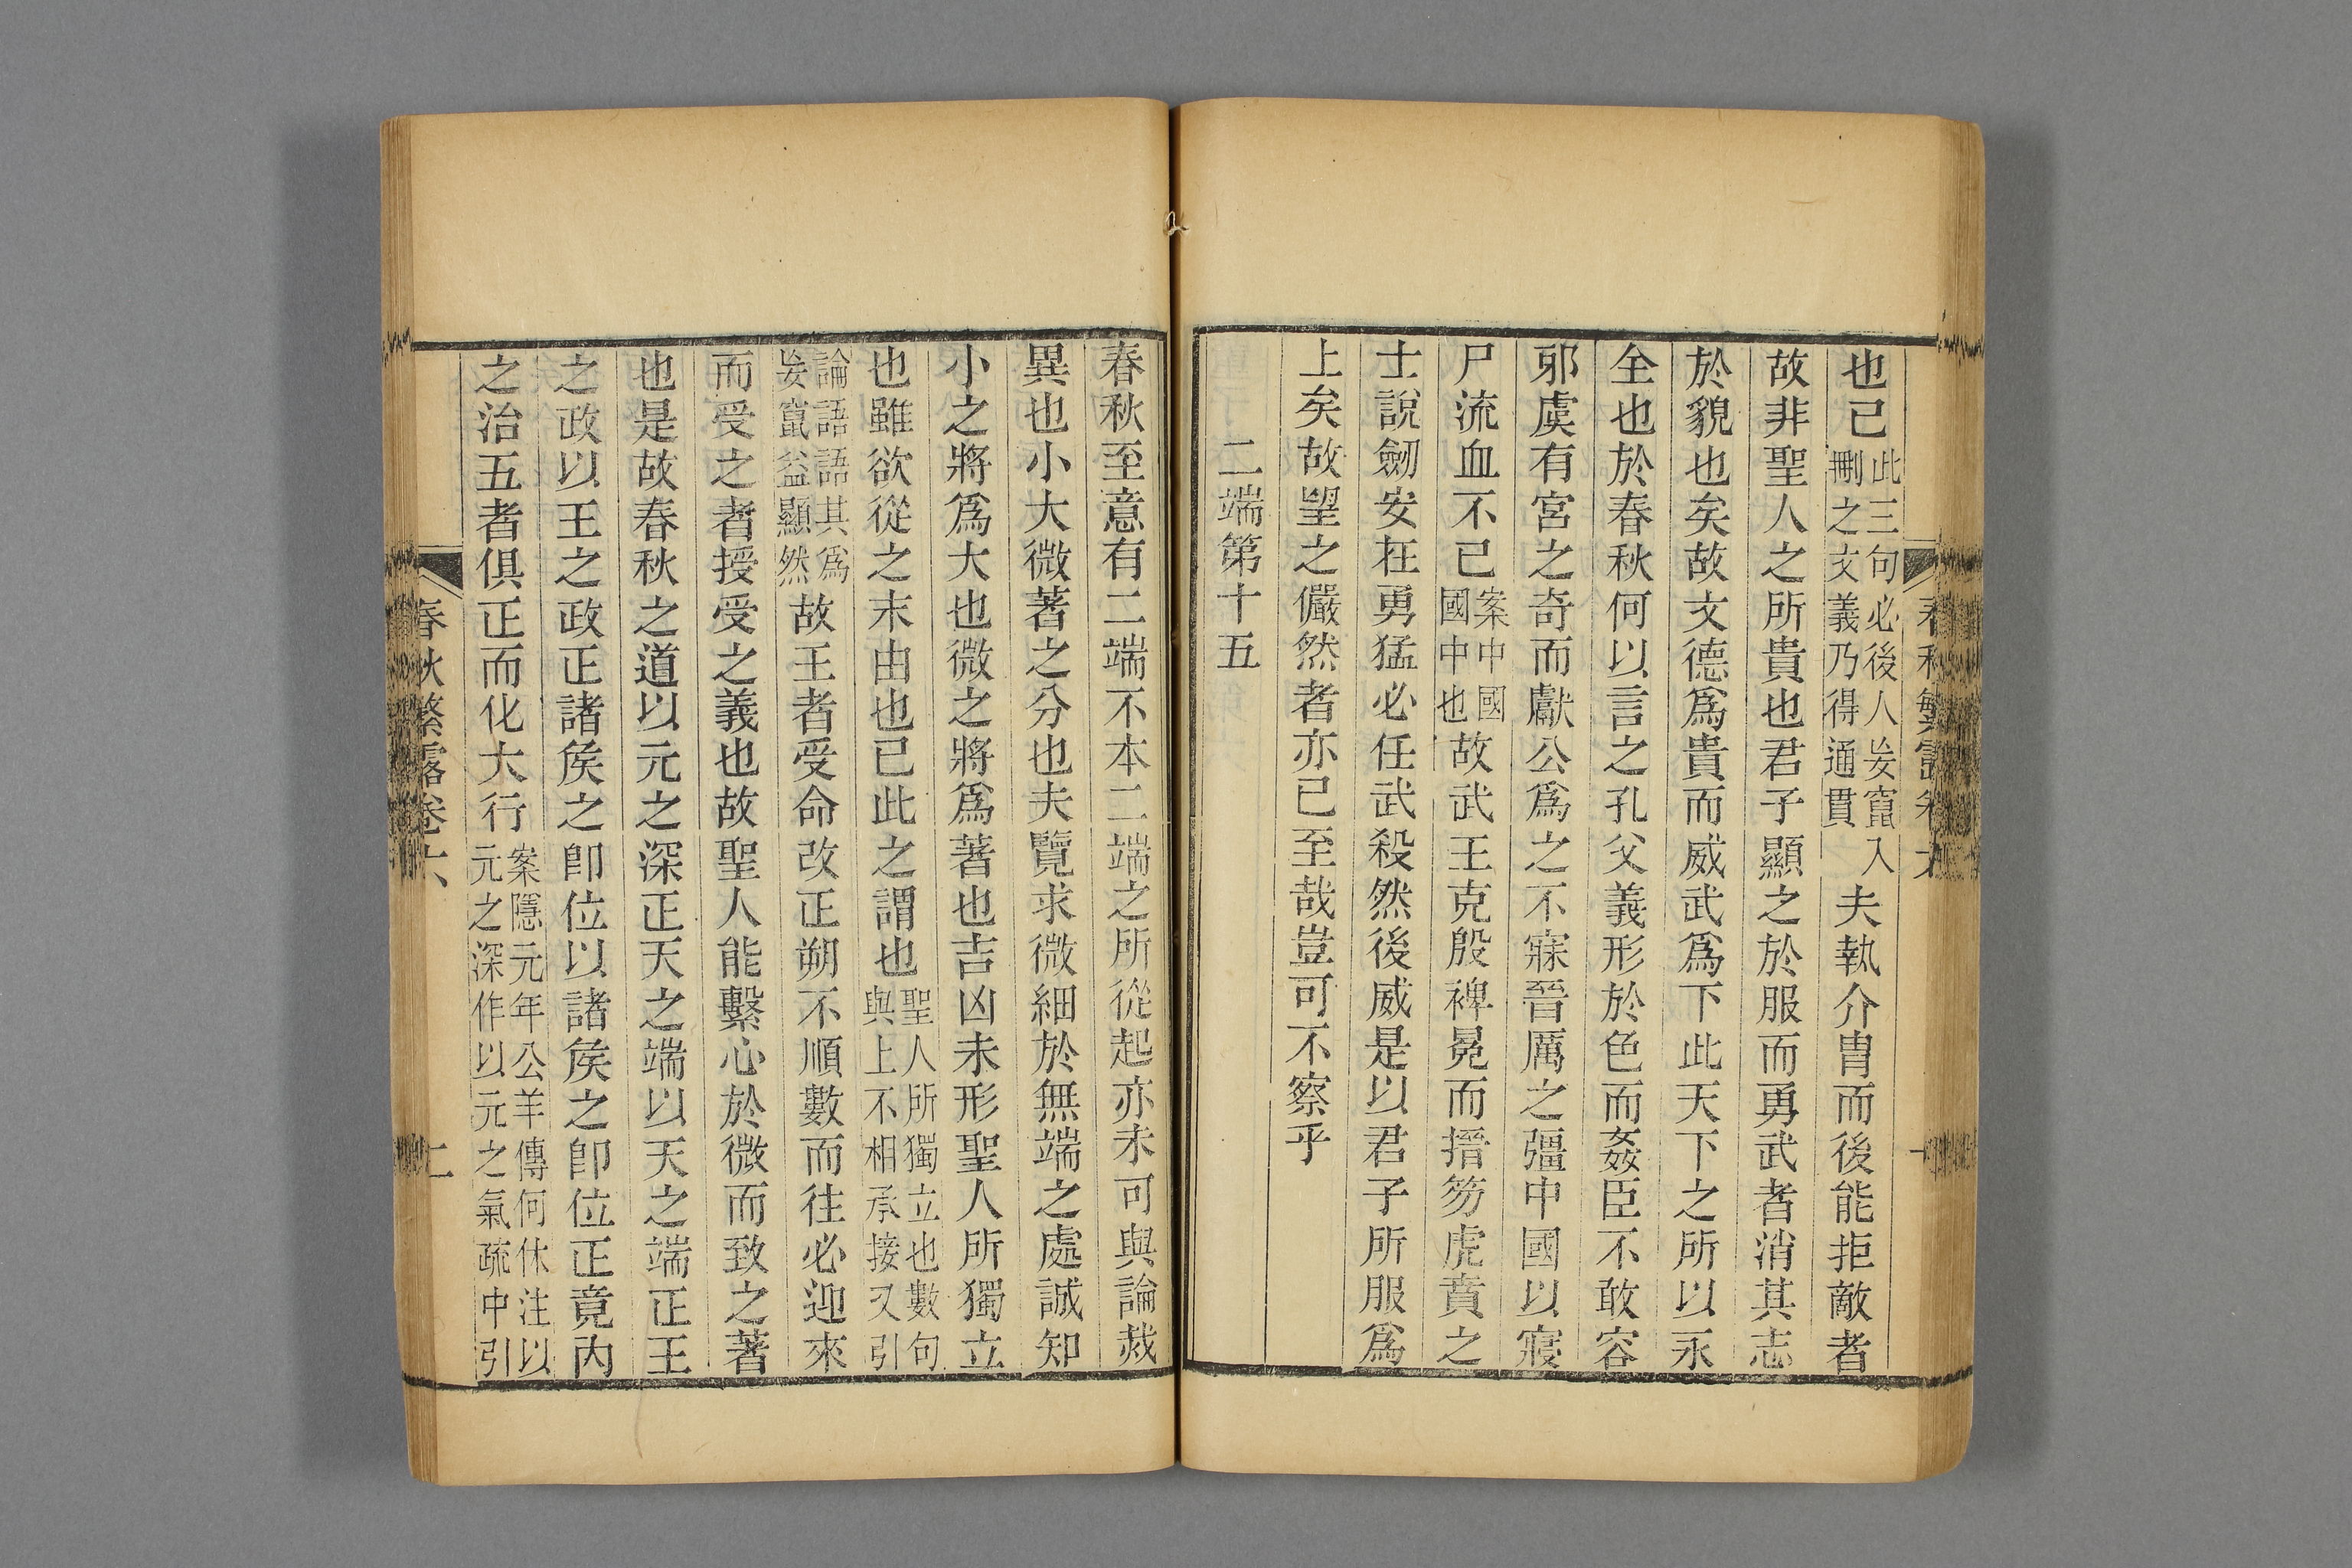 也已此三句必後人妄竄入刪之文義乃得通貫夫執介冑而後能拒敵者
故非聖人之所貴也君子顯之於服而勇武者消其志
於貌也矣故文德爲貴而威武爲下此天下之所以永
全也於春秋何以言之孔父義形於色而姦臣不敢容
邪虞有宮之奇而獻公爲之不寐晉厲之彊中國以寢
尸流血不已案中國國中也故武王克殷裨冕而搢笏虎賁之
士說劒安在勇猛必任武殺然後威是以君子所服爲
上矣故望之儼然者亦已至哉豈可不察乎
二端第十五
春秋至意有二端不本二端之所從起亦未可與論烖
異也小大微著之分也夫覽求微細於無端之處誠知
小之將爲大也微之將爲著也吉凶未形聖人所獨立
也雖欲從之末由也已此之謂也聖人所獨立也數句與上不相承接又引
論語語其爲妄竄益顯然故王者受命改正朔不順數而往必迎來
而受之者授受之義也故聖人能繫心於微而致之著
也是故春秋之道以元之深正天之端以天之端正王
之政以王之政正諸矦之卽位以諸矦之卽位正竟內
之治五者俱正而化大行案隱元年公羊傳何休注以元之深作以元之氣疏中引
春秋繁露卷六
二